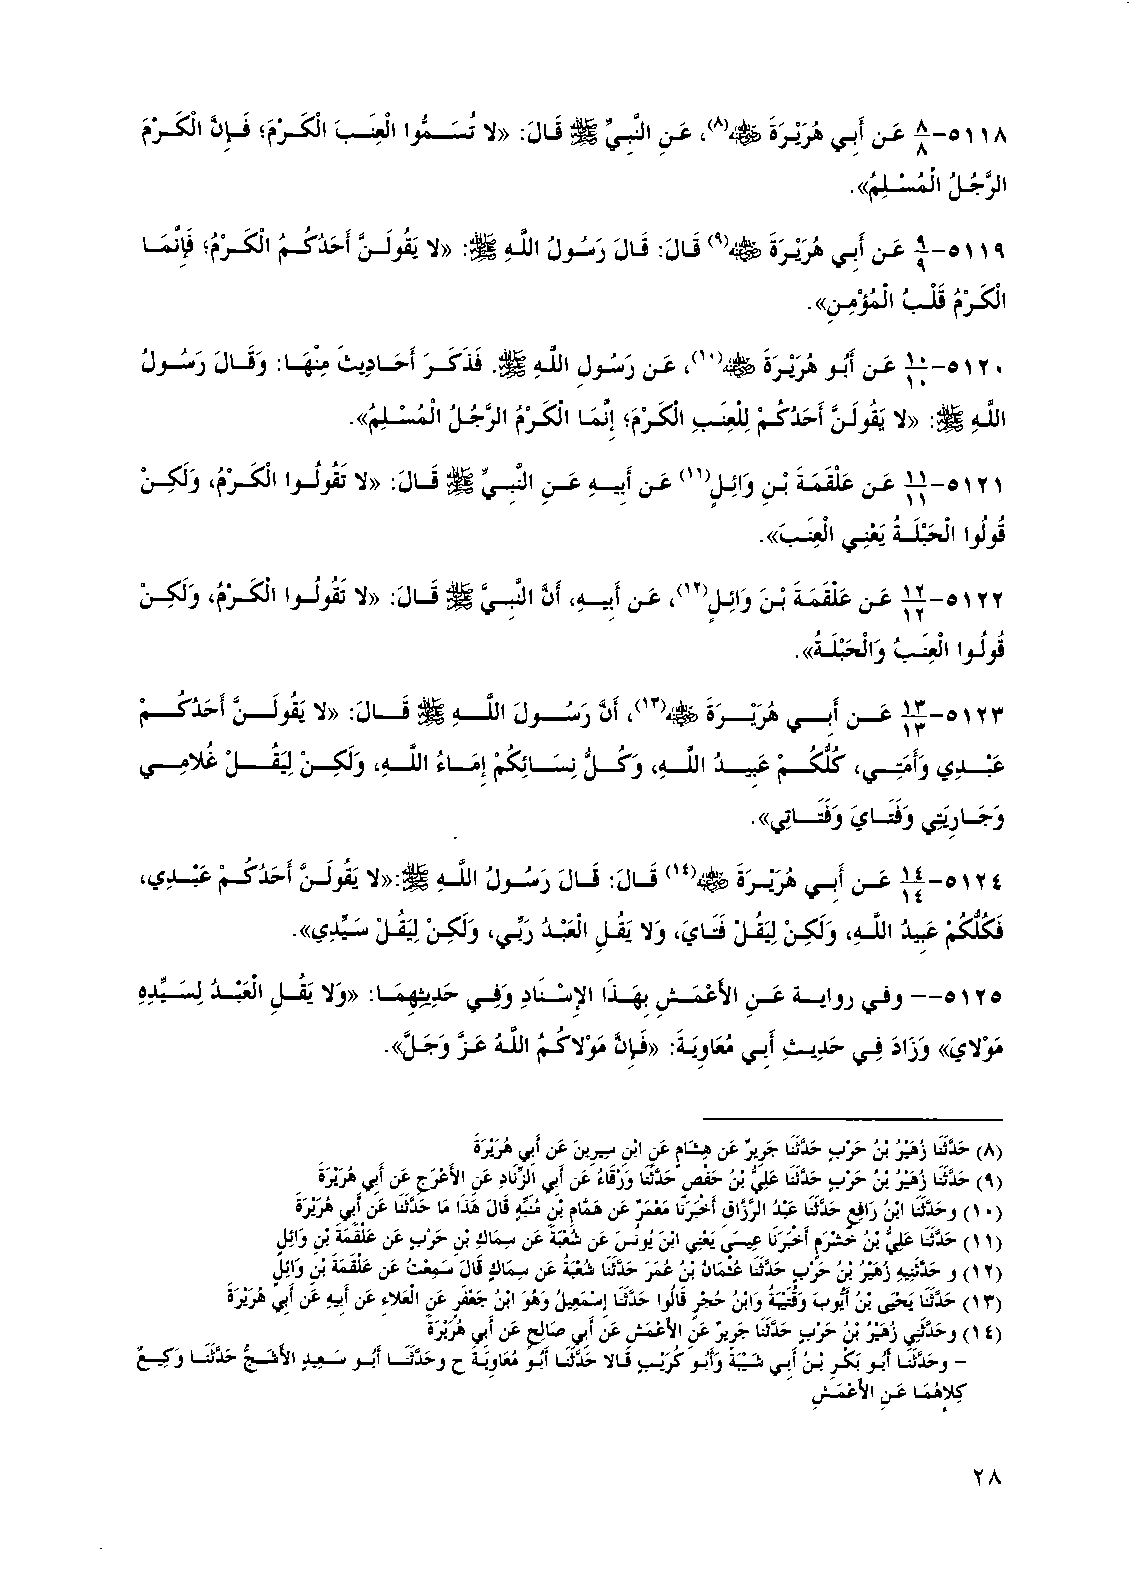 ٥١١٨-<u>٨</u>٨ عَن أَبِي هُرَيْرَةَ ﵁(٨)، عَنِ النَّبِيِّ ﷺ قَالَ: «لا تُسَمُّوا الْعِنَبَ الْكَرْمَ؛ فَإِنَّ الْكَرْمَ
الرَّجُلُ الْمُسْلِمُ».
٥١١٩-<u>٩</u>٩ عَن أَبِي هُرَيْرَةَ ﵁(٩) قَالَ: قَالَ رَسُولُ اللهِ ﷺ: «لا يَقُولَنَّ أَحَدُكُمُ الْكَرْمُ؛ فَإِنَّمَا
الْكَرْمُ قَلْبُ الْمُؤْمِنِ».
٥١٢٠-<u>١٠</u>١٠ عَن أَبُو هُرَيْرَةَ ﵁(١٠)، عَن رَسُولِ اللهِ ﷺ. فَذَكَرَ أَحَادِيثَ مِنْهَا: وَقَالَ رَسُولُ
اللهِ ﷺ: «لا يَقُولَنَّ أَحَدُكُمْ لِلْعِنَبِ الْكَرْمَ؛ إِنَّمَا الْكَرْمُ الرَّجُلُ الْمُسْلِمُ».
٥١٢١-<u>١١</u>١١ عَن عَلْقَمَةَ بْنِ وَائِلٍ(١١) عَن أَبِيهِ عَنِ النَّبِيِّ ﷺ قَالَ: «لا تَقُولُوا الْكَرْمُ، وَلَكِنْ
قُولُوا الْحَبْلَةُ يَعْنِي الْعِنَبَ».
٥١٢٢-<u>١٢</u>١٢ عَن عَلْقَمَةَ بْنَ وَائِلٍ(١٢)، عَن أَبِيهِ، أَنَّ النَّبِيَّ ﷺ قَالَ: «لا تَقُولُوا الْكَرْمُ، وَلَكِنْ
قُولُوا الْعِنَبُ وَالْحَبْلَةُ».
٥١٢٣-<u>١٣</u>١٣ عَن أَبِي هُرَيْرَةَ ﵁(١٣)، أَنَّ رَسُولَ اللهِ ﷺ قَالَ: «لا يَقُولَنَّ أَحَدُكُمْ
عَبْدِي وَأَمَتِي، كُلُّكُمْ عَبِيدُ اللهِ، وَكُلُّ نِسَائِكُمْ إِمَاءُ اللهِ، وَلَكِنْ لِيَقُلْ غُلامِي
وَجَارِيَتِي وَفَتَايَ وَفَتَاتِي».
٥١٢٤-<u>١٤</u>١٤ عَن أَبِي هُرَيْرَةَ ﵁(١٤) قَالَ: قَالَ رَسُولُ اللهِ ﷺ:«لا يَقُولَنَّ أَحَدُكُمْ عَبْدِي،
فَكُلُّكُمْ عَبِيدُ اللهِ، وَلَكِنْ لِيَقُلْ فَتَايَ، وَلا يَقُلِ الْعَبْدُ رَبِّي، وَلَكِنْ لِيَقُلْ سَيِّدِي».
٥١٢٥-- وفي رواية عَنِ الأَعْمَشِ بِهَذَا الإِسْنَادِ وَفِي حَدِيثِهِمَا: «وَلا يَقُلِ الْعَبْدُ لِسَيِّدِهِ
مَوْلايَ» وَزَادَ فِي حَدِيثِ أَبِي مُعَاوِيَةَ: «فَإِنَّ مَوْلاكُمُ اللهُ عَزَّ وَجَلَّ».
(٨) حَدَّثَنَا زُهَيْرُ بْنُ حَرْبٍ حَدَّثَنَا جَرِيرٌ عَن هِشَامٍ عَنِ ابْنِ سِيرِينَ عَن أَبِي هُرَيْرَةَ
(٩) حَدَّثَنَا زُهَيْرُ بْنُ حَرْبٍ حَدَّثَنَا عَلِيُّ بْنُ حَفْصٍ حَدَّثَنَا وَرْقَاءُ عَن أَبِي الزِّنَادِ عَنِ الأَعْرَجِ عَن أَبِي هُرَيْرَةَ
(١٠) وحَدَّثَنَا ابْنُ رَافِعٍ حَدَّثَنَا عَبْدُ الرَّزَّاقِ أَخْبَرَنَا مَعْمَرٌ عَن هَمَّامِ بْنِ مُنَبِّهٍ قَالَ هَذَا مَا حَدَّثَنَا عَن أَبِي هُرَيْرَةَ
(١١) حَدَّثَنَا عَلِيُّ بْنُ خَشْرَمٍ أَخْبَرَنَا عِيسَى يَعْنِي ابْنَ يُونُسَ عَن شُعْبَةَ عَن سِمَاكِ بْنِ حَرْبٍ عَن عَلْقَمَةَ بْنِ وَائِلٍ
(١٢) و حَدَّثَنِيهِ زُهَيْرُ بْنُ حَرْبٍ حَدَّثَنَا عُثْمَانُ بْنُ عُمَرَ حَدَّثَنَا شُعْبَةُ عَن سِمَاكٍ قَالَ سَمِعْتُ عَن عَلْقَمَةَ بْنِ وَائِلٍ
(١٣) حَدَّثَنَا يَحْيَى بْنُ أَيُّوبَ وَقُتَيْبَةُ وَابْنُ حُجْرٍ قَالُوا حَدَّثَنَا إِسْمَعِيلُ وَهُوَ ابْنُ جَعْفَرٍ عَنِ الْعَلاءِ عَن أَبِيهِ عَن أَبِي هُرَيْرَةَ
(١٤) وحَدَّثَنِي زُهَيْرُ بْنُ حَرْبٍ حَدَّثَنَا جَرِيرٌ عَنِ الأَعْمَشِ عَن أَبِي صَالِحٍ عَن أَبِي هُرَيْرَةَ
- وحَدَّثَنَا أَبُو بَكْرِ بْنُ أَبِي شَيْبَةَ وَأَبُو كُرَيْبٍ قَالا حَدَّثَنَا أَبُو مُعَاوِيَةَ ح وحَدَّثَنَا أَبُو سَعِيدٍ الأَشَجُّ حَدَّثَنَا وَكِيعٌ
كِلاهُمَا عَنِ الأَعْمَشِ
٢٨